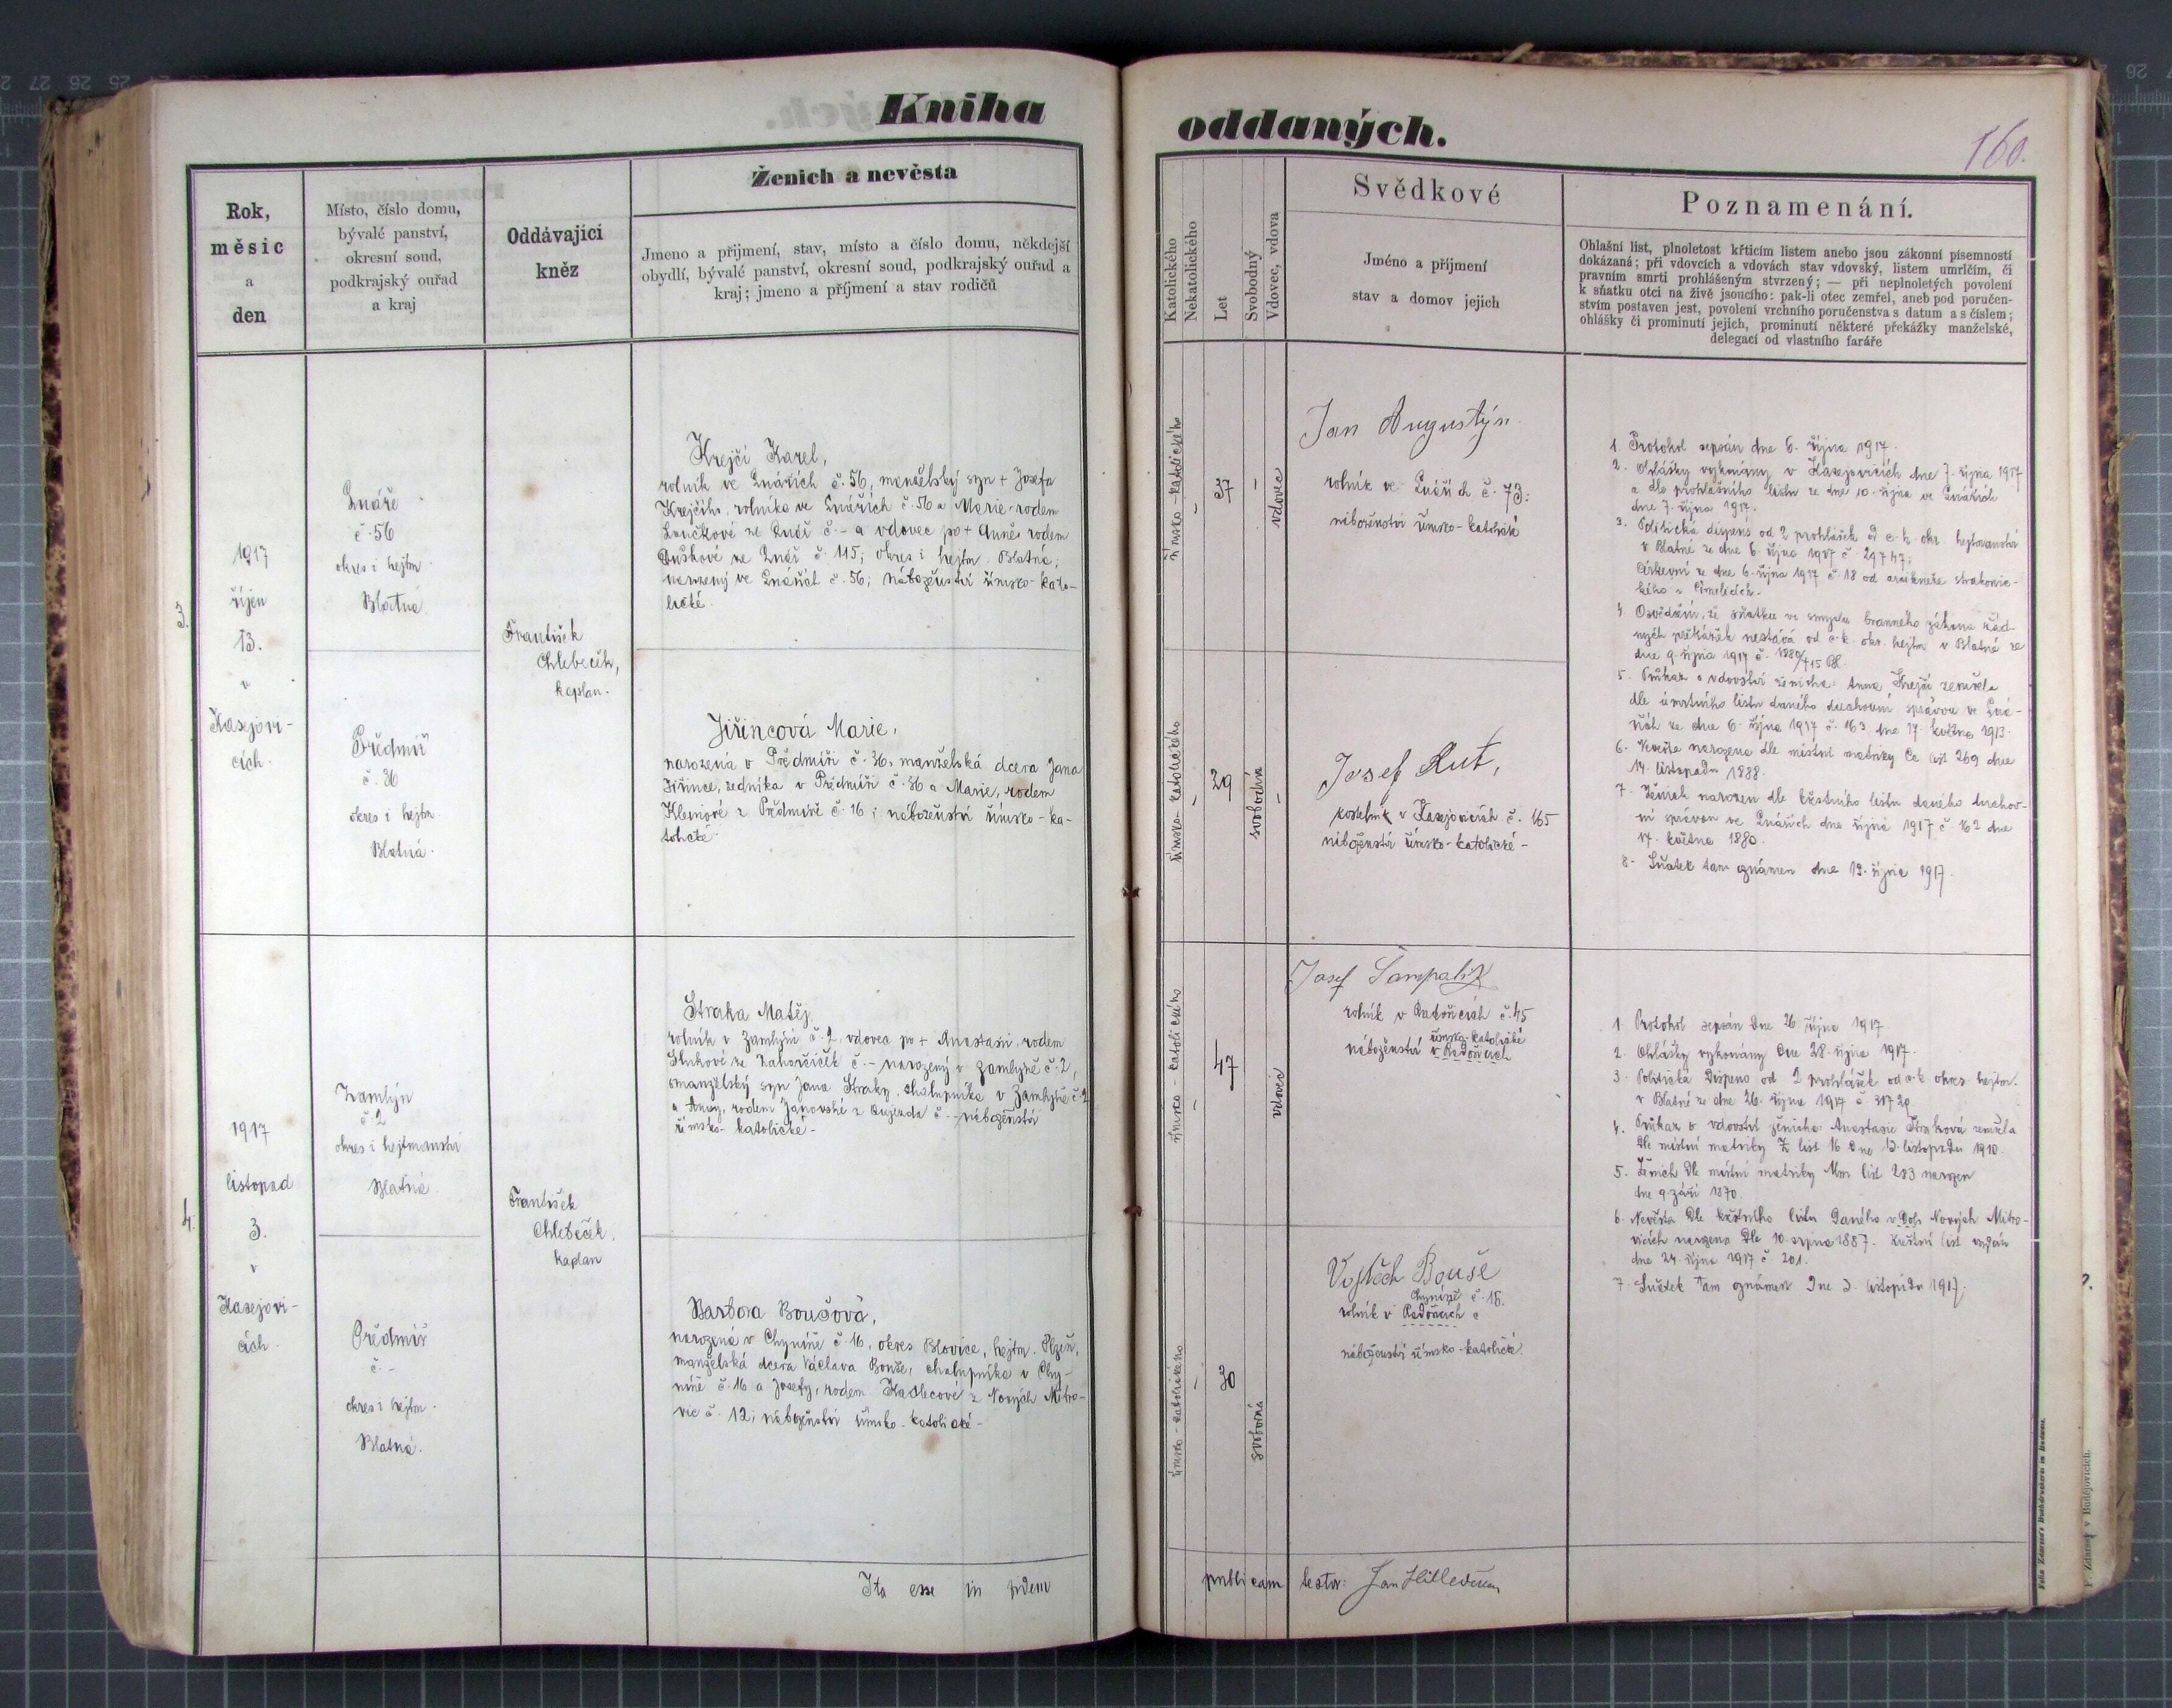 Kniha
oddaných.
160.
Rok,
měsíc
a
den
Místo, číslo domu,
bývalé panství,
okresní soud,
podkrajský ouřad
a kraj
Oddávající
kněz
Ženich a nevěsta
Jmeno a přijmení, stav, místo a číslo domu, někdejší
obydlí, bývalé panství, okresní soud, podkrajský ouřad a
kraj; jmeno a příjmení a stav rodičů
Katolického
Nekatolického
Let
Svobodný
Vdovec, vdova
Svědkové
Jméno a příjmení
stav a domov jejich
Poznamenání.
Ohlašní list, plnoletost křticím listem anebo jsou zákonní písemností
dokázaná; při vdovcích a vdovách stav vdovský, listem umrlčím, či
pravním smrti prohlášeným stvrzený; — při neplnoletých povolení
k sňatku otci na živě jsoucího: pak-li otec zemřel, aneb pod poručen-
stvím postaven jest, povolení vrchního poručenstva s datum a s číslem;
ohlášky či prominutí jejich, prominutí některé překážky manželské,
delegací od vlastního faráře
3.
1917
říjen
13.
v
Kasejovi-
cích.
Lnáře
č. 56
okres i hejtm.
Blatná
Předmíř
č. 36
okres i hejtm.
Blatná.
František
Chlebeček,
kaplan.
Krejčí Karel,
rolník ve Lnářích č. 56, manželský syn + Josefa
Krejčího, rolníka ve Lnářích č. 56 a Marie rodem
ze Lnář č. - a vdovec po + Anně rodem
ze Lnář č. 115; okres i hejtm. Blatná;
narozený ve Lnářích č. 56; náboženství římsko-kato-
lické.
Jiřincová Marie,
narozená v Předmíři č. 36, manželská dcera Jana
Jiřince, zedníka v Předmíři č. 36 a Marie, rodem
z Předmíře č. 16; náboženství římsko-ka-
tolické.
římsko-katolického
37
vdovec
římsko-katolického
29
svobodná
Jan Augustýn
rolník ve Lnářích č. 73:
náboženství římsko-katolické
Josef Rut,
kostelník v Kasejovicích č. 165
náboženství římsko-katolické -
1. Protokol sepsán dne 6. října 1917.
2. Ohlášky vykonány v Kasejovicích dne 7. října 1917
a dle prohlašního listu ze dne 10. října ve Lnářích
dne 7. října 1917.
3. Politická dispens od 2 prohlášek od c. k. okr. hejtmanství
v Blatné ze dne 6. října 1917 č. 29747;
Církevní ze dne 6. října 1917 č. 18 od arcikněze strakonic-
kého v Čimelicích.
4. Osvědčení, že sňatku ve smyslu branného zákona žád-
ných překážek nestává od c. k. okr. hejtm v Blatné ze
dne 9. října 1917 č.
5. Průkaz o vdovství ženicha: Anna Krejčí zemřela
dle úmrtního listu daného duchovní správou ve Lná-
řích ze dne 6. října 1917 č. 163 dne 17. května 1913.
6. Nevěsta narozena dle místní matriky list 269 dne
14. listopadu 1888.
7. Ženich narozen dle křestního listu daného duchov-
ní správou ve Lnářích dne října 1917 č. 162 dne
17. května 1880.
8. Sňatek tam oznámen dne 13. října 1917.
4.
1917
listopad
3.
v
Kasejovi-
cích.
Zamlýn
č. 2
okres i hejtmanství
Blatná
Předmíř
č. -
okres i hejtm.
Blatná.
František
Chlebeček,
kaplan
Straka Matěj
rolník v Zamlýni č. 2, vdovec po + Anastasii, rodem
ze Zahorčiček č. - narozený v Zamlýně č. 2,
manželský syn Jana Straky, chalupníka v Zamlýně č. 2
a Anny, rodem Janovské z č. - náboženství
římsko-katolické -
Barbora Boušová,
narozená v Chyníně č. 16, okres Blovice, hejtm. Plzeň,
manželská dcera Václava Bouše, chalupníka v Chy-
níně č. 16 a Josefy, rodem Kadlecové z Nových Mitro-
vic č. 12; náboženství římsko-katolické -
římsko-katolického
47
vdovec
římsko-katolického
30
svobodná
Josef Šampalík
rolník v Radošicích č. 45
římsko-katolické
náboženství v Radošicích
Vojtěch Bouše
Chyníně č. 18.
rolník v Radošicích č
náboženství římsko-katolické.
1. Protokol sepsán dne 26. října 1917.
2. Ohlášky vykonány dne 28. října 1917.
3. Politická Dispens od 2 prohlášek od c. k. okres. hejtm.
v Blatné ze dne 26. října 1917 č. 31720
4. Průkaz o vdovství ženicha: Anastasie Straková zemřela
dle místní matriky Z list 16 dne 13. listopadu 1910.
5. Ženich dle místní matriky list 283 narozen
dne 9. září 1870.
6. Nevěsta dle křestního listu daného v Nových Mitro-
vicích narozena dle 10. srpna 1887. Křestní list vydán
dne 24. října 1917 č. 201.
7. Sňatek tam oznámen dne 3. listopadu 1917.
Ita esse in fidem
publicam testor: Jan Hille děkan
Felix Zdarssa's Buchdruckerei in Budweis.
F. Zdarssy v Budějovicích.